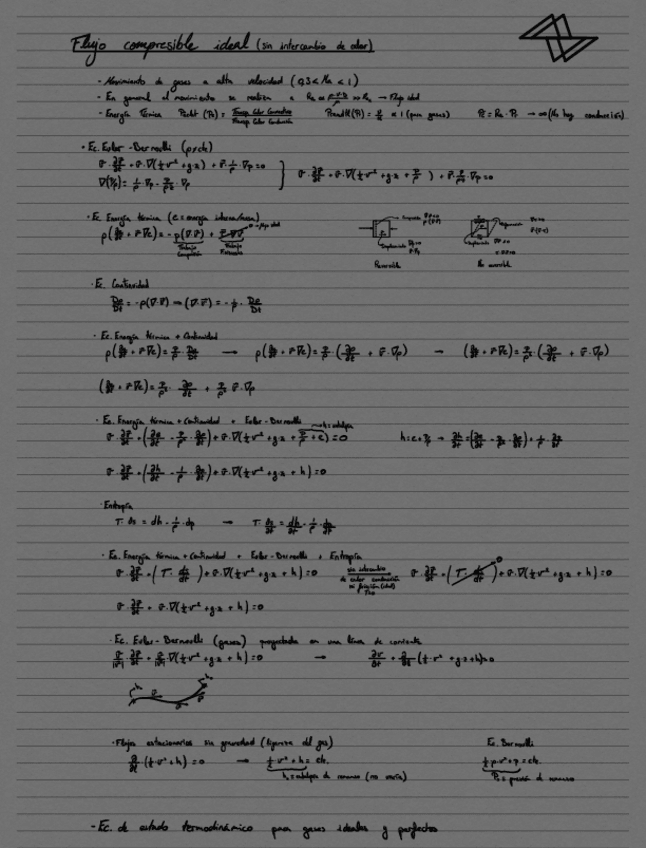 Flujo compresible ideal (sin intercambio de calor)
- Movimiento de gases a alta velocidad (0,3 < Ma < 1)
- En general el movimiento se realiza a Re → Flujo ideal
- Energía Térmica Peclet (Pe) = Transp. Calor Convectivo / Transp. Calor Conducción Prandtl (Pr) = (para gases) Pe = Re · Pr → ∞ (No hay conducción)
· Ec. Euler - Bernoulli (ρ≠cte)
v̄ · ∂v̄/∂t + v̄ · ∇(½ v² + g·z) + v̄ · 1/ρ · ∇p = 0
∇(p/ρ) = 1/ρ · ∇p - p/ρ² · ∇ρ
v̄ · ∂v̄/∂t + v̄ · ∇(½ v² + g·z + p/ρ) + v̄ · p/ρ² · ∇ρ = 0
· Ec. Energía térmica (e = energía interna/masa)
ρ(∂e/∂t + v̄·∇e) = - p(∇·v̄) +
Trabajo Compresión
Trabajo
Reversible
No reversible
· Ec. Continuidad
Dρ/Dt = -ρ(∇·v̄) → (∇·v̄) = - 1/ρ · Dρ/Dt
· Ec. Energía térmica + Continuidad
ρ(∂e/∂t + v̄·∇e) = p/ρ · Dρ/Dt → ρ(∂e/∂t + v̄·∇e) = p/ρ · (∂ρ/∂t + v̄·∇ρ) → (∂e/∂t + v̄·∇e) = p/ρ² · (∂ρ/∂t + v̄·∇ρ)
(∂e/∂t + v̄·∇e) = p/ρ² · ∂ρ/∂t + p/ρ² v̄·∇ρ
· Ec. Energía térmica + Continuidad + Euler - Bernoulli
h = entalpía
v̄ · ∂v̄/∂t + (∂e/∂t - p/ρ² · ∂ρ/∂t) + v̄ · ∇(½ v² + g·z + p/ρ + e) = 0 h = e + p/ρ → ∂h/∂t = (∂e/∂t - p/ρ² · ∂ρ/∂t) + 1/ρ · ∂p/∂t
v̄ · ∂v̄/∂t + (∂h/∂t - 1/ρ · ∂p/∂t) + v̄ · ∇(½ v² + g·z + h) = 0
· Entropía
T · ds = dh - 1/ρ · dp → T · ds/dt = dh/dt - 1/ρ · dp/dt
· Ec. Energía térmica + Continuidad + Euler - Bernoulli + Entropía
v̄ · ∂v̄/∂t + (T · ds/dt) + v̄ · ∇(½ v² + g·z + h) = 0 sin intercambio de calor conducción ni fricción (ideal) v̄ · ∂v̄/∂t + (T · ds/dt) + v̄ · ∇(½ v² + g·z + h) = 0
v̄ · ∂v̄/∂t + v̄ · ∇(½ v² + g·z + h) = 0
· Ec. Euler - Bernoulli (gases) proyectada en una línea de corriente
v̄/|v̄| · ∂v̄/∂t + v̄/|v̄| · ∇(½ v² + g·z + h) = 0 → ∂v/∂t + ∂/∂s (½ · v² + g·z + h) = 0
· Flujos estacionarios sin gravedad (ligereza del gas) Ec. Bernoulli
(½ · v² + h) = 0 → ½ · v² + h = cte. ½ ρ · v² + p = cte.
h₀ = entalpía de remanso (no varía) P₀ = presión de remanso
- Ec. de estado termodinámico para gases ideales y perfectos